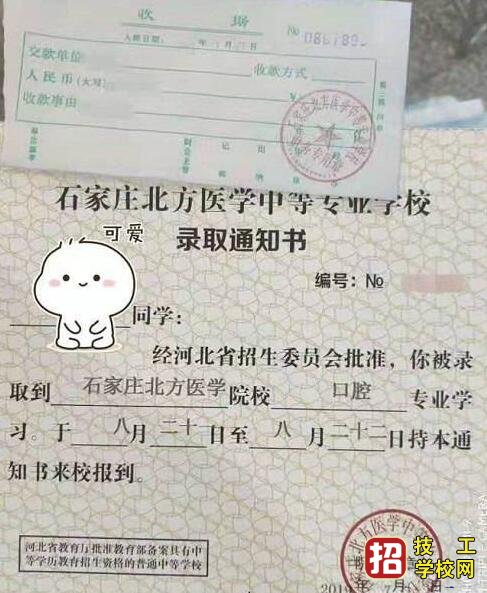 收 据
入账日期: 年 月 日
交款单位
收款方式
人民币(大写)
¥
收款事由
石家庄北方医学中等专业学校
录取通知书
可爱
编号: №
同学:
经河北省招生委员会批准，你被录
取到 石家庄北方医学 院校 口腔 专业学
习。于 八月 二十 日至 八 月 二十二 日持本通
知书来校报到。
河北省教育厅批准教育部备案具有中
等学历教育招生资格的普通中等学校
北方医学中等
招 技工
学校网